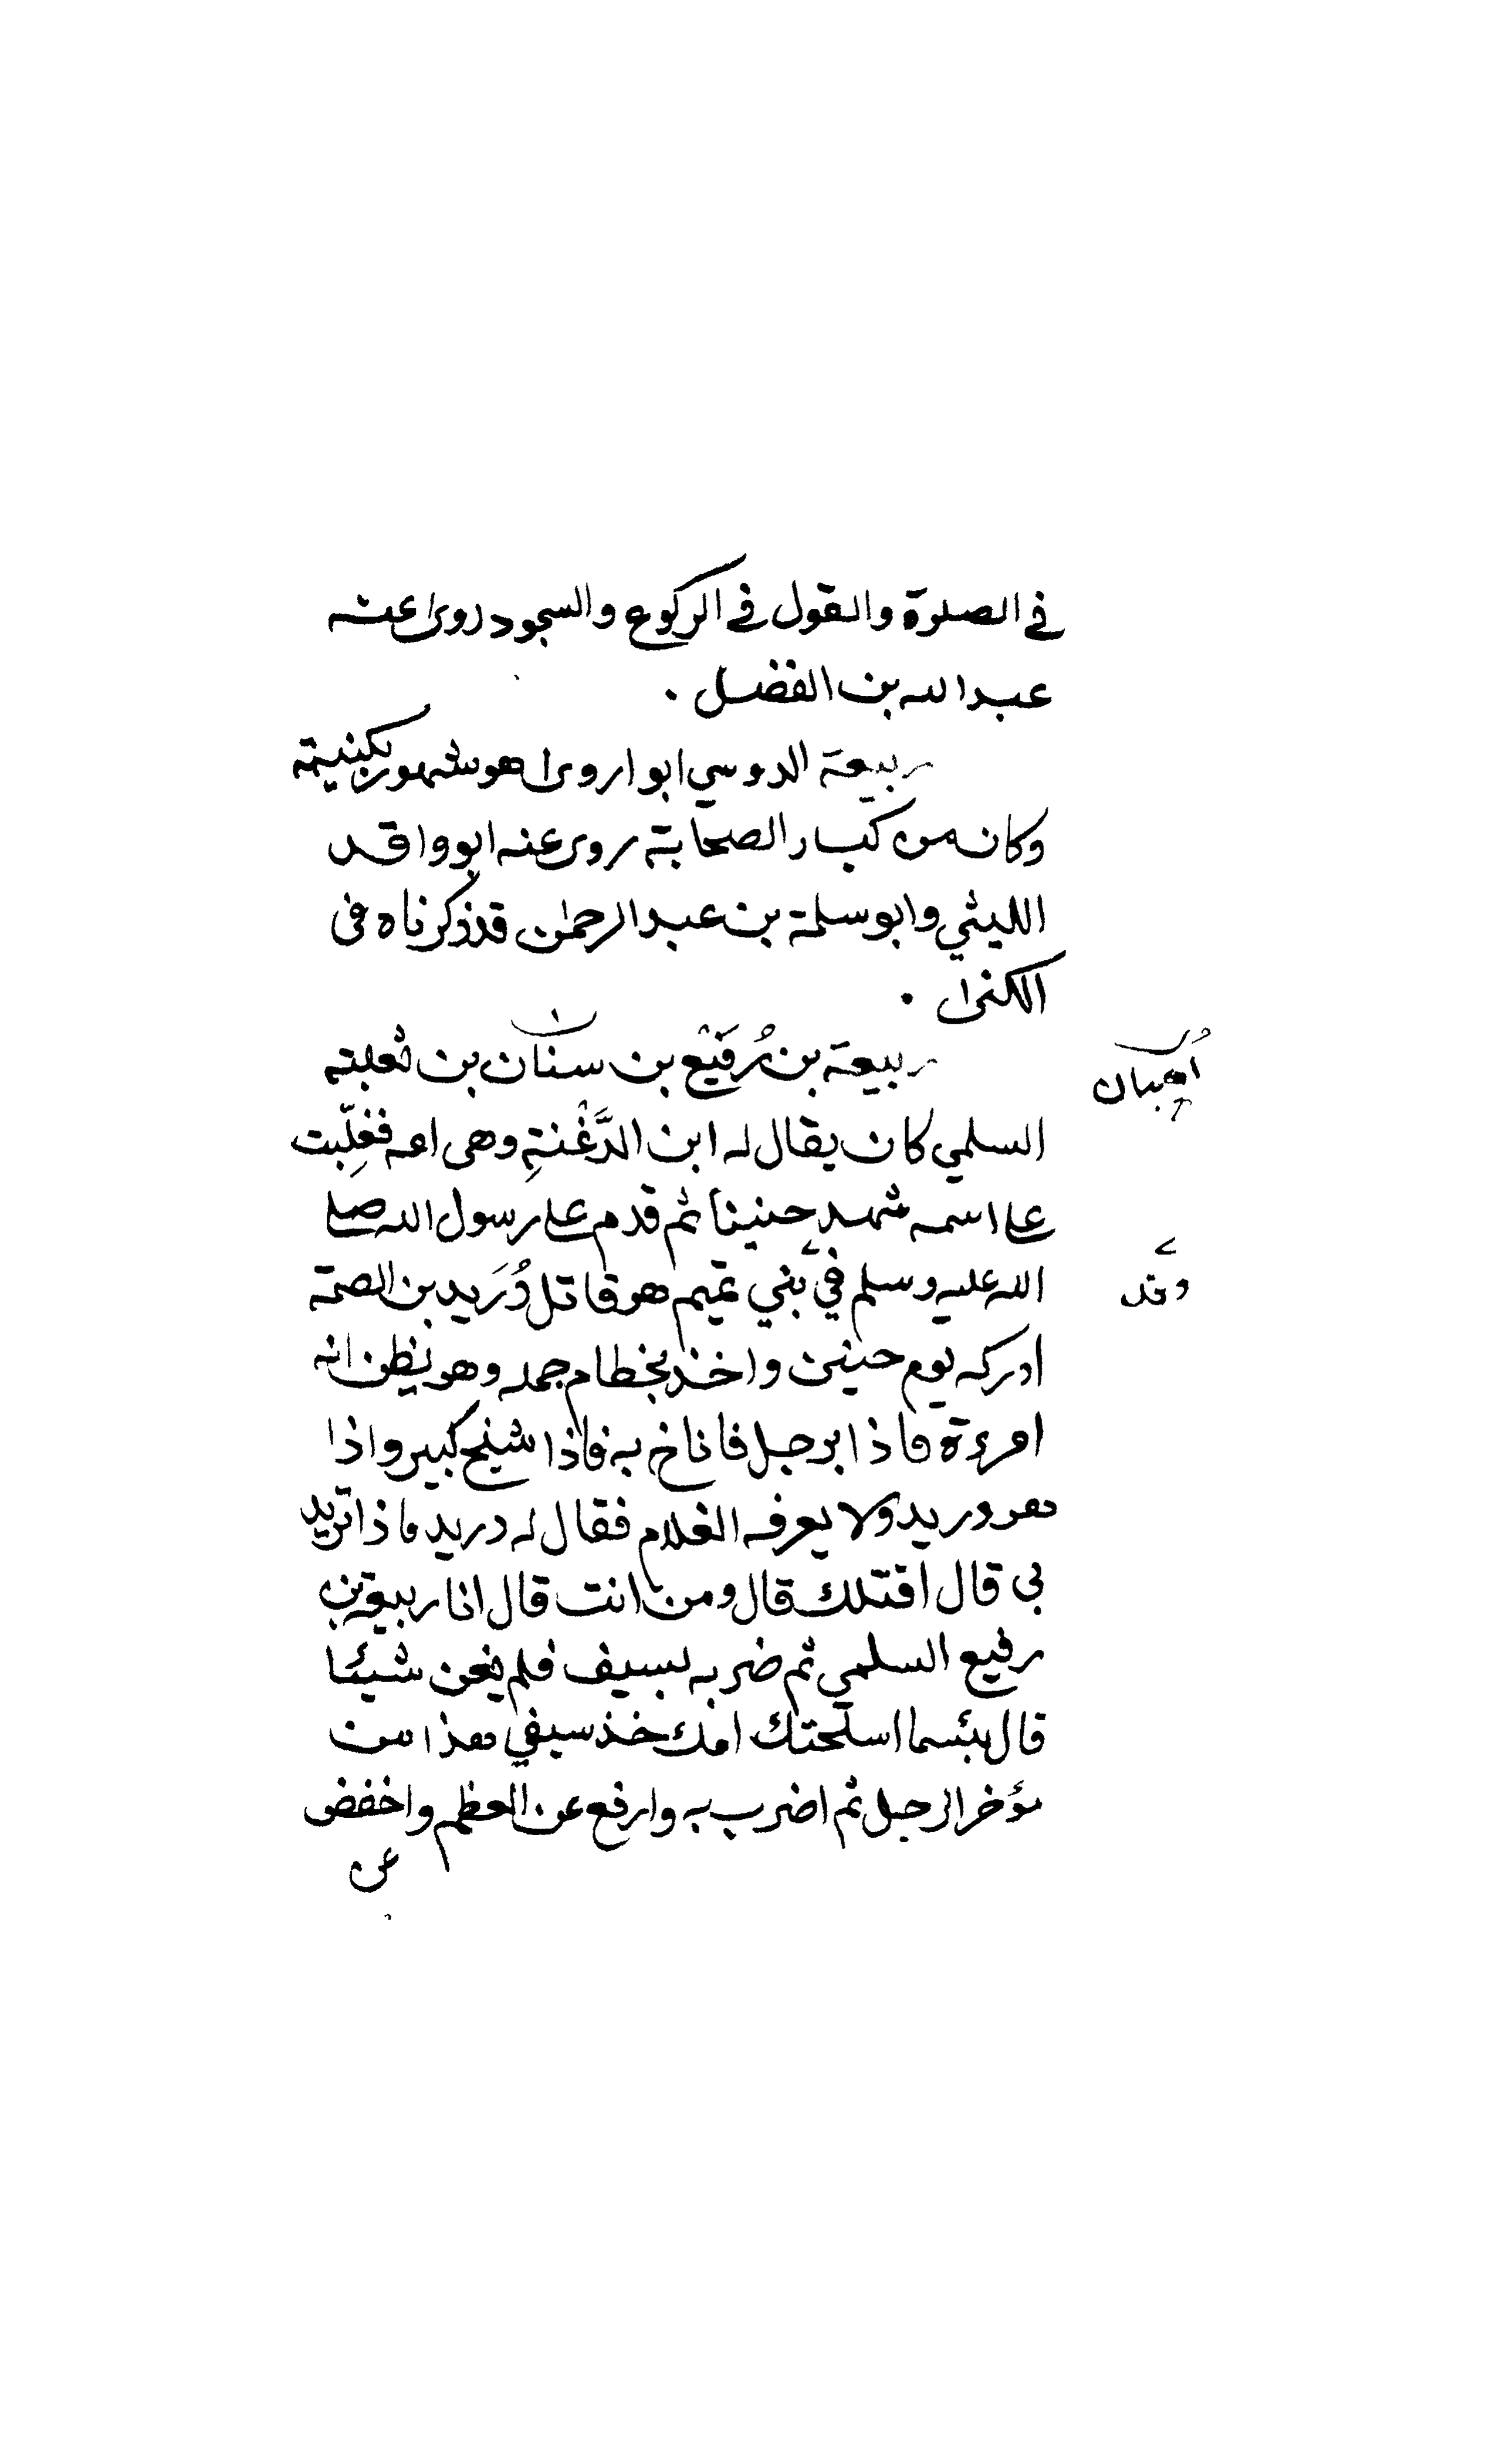 في الصلوة والقول في الركوع والسجود روى عنه
عبد الله بن الفضل .
ربيعة الدوسي ابو اروى هو مشهور بكنيته
وكان من كبار الصحابة روى عنه ابو واقد
الليثي وابو سلمة بن عبد الرحمن قد ذكرناه فى
الكنى .
ربيعة بن رُفَيْع بن سنان بن ثعلبة
أهبان
السلمي كان يقال له ابن الدَّغْنةِ وهى امه فغلّبت
على اسمه شهد حنينا ثم قدم على رسول الله صلى
الله عليه وسلم في بني تميم هو قاتل دُرَيد بن الصمة
وقد
ادركه يوم حنين واخذ بخطام جمله وهو يظن انه
امرءة فاذا برجل فاناخ به فاذا شيخ كبير واذا
هو دريد ولا يعرفه الغلام فقال له دريد ماذا تريد
بي قال اقتلك قال ومن انت قال انا ربيعة بن
رفيع السلمي ثم ضربه بسيف فلم يغن شيئا
قال بئسما اسلحتك امك خذ سيفي هذا من
مؤخر الرحل ثم اضرب به وارفع عن العظم واخفض
عن